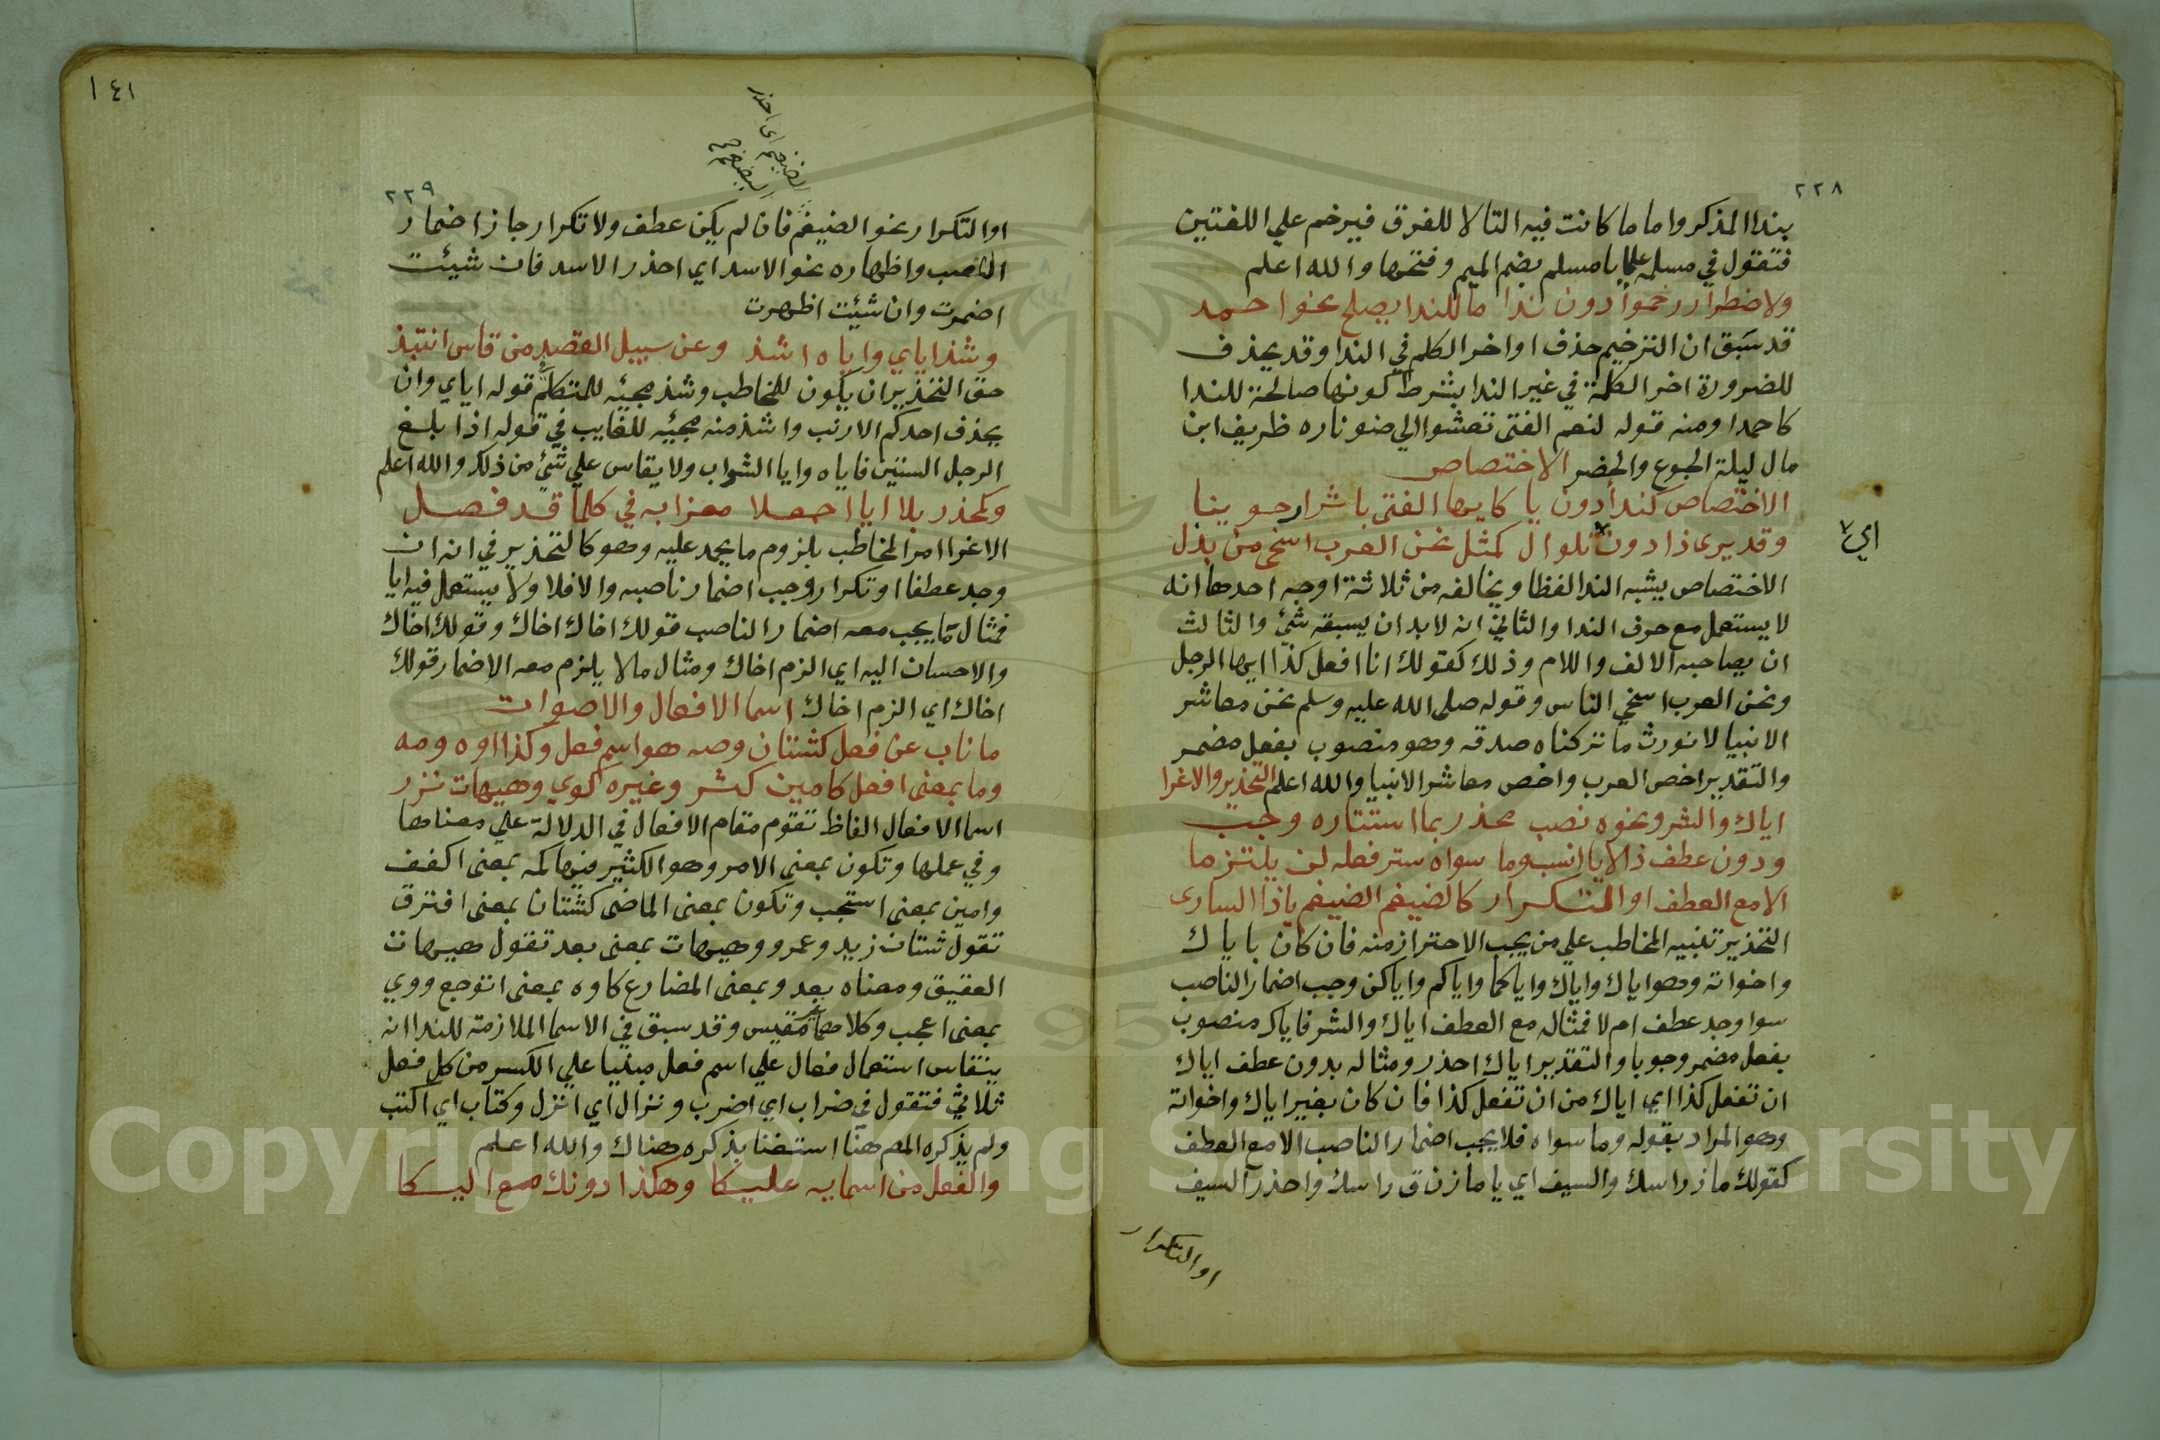 ٢٢٨
بندا المذكر واما ما كانت فيه التا لا للفرق فيرخم علي اللغتين
فتقول في مسلمة علما يا مسلم بضم الميم وفتحها والله اعلم
ولاضطرار رخموا دون ندا ما للندا يصلح نحو احمد
قد سبق ان الترخيم حذف اواخر الكلم في الندا وقد يحذف
للضرورة اخر الكلمة في غير الندا بشرط كونها صالحة للندا
كاحمدا ومنه قوله لنعم الفتى تعشوا الي ضو ناره ظريف ابن
مال ليلة الجوع والخصر الاختصاص
الاختصاص كندا دون يا كايها الفتى باثر ارجو ينا
وقد يرى ذا دون تلو ال كمثل نحن العرب اسخى من بذل
اي
الاختصاص يشبه الندا لفظا ويخالفه من ثلاثة اوجه احدها انه
لا يستعمل مع حرف الندا والثاني انه لابد ان يسبقه شئ والثالث
ان يصاحبه الالف واللام وذلك كقولك انا افعل كذا ايها الرجل
ونحن العرب اسخي الناس وقوله صلى الله عليه وسلم نحن معاشر
الانبيا لا نورث ما تركناه صدقه وهو منصوب بفعل مضمر
والتقدير اخص العرب واخص معاشر الانبيا والله اعلم التحذير والاغرا
اياك والشر ونحوه نصب محذر بما استتاره وجب
ودون عطف ذا لايا انسب وما سواه ستر فعله لن يلتزما
الا مع العطف او التكرار كالضيغم الضيغم ياذا السارى
التحذير تنبيه المخاطب علي من يجب الاحتراز منه فان كان باياك
واخواته وهو اياك واياك واياكما واياكم واياكن وجب اضمار الناصب
سوا وجد عطف ام لا فمثاله مع العطف اياك والشر فاياك منصوب
بفعل مضمر وجوبا والتقدير اياك احذر ومثاله بدون عطف اياك
ان تفعل كذا اي اياك من ان تفعل كذا فان كان بغير اياك واخواته
وهو المراد بقوله وما سواه فلا يجب اضمار الناصب الا مع العطف
كقولك ماز راسك والسيف اي يا مازن ق راسك واحذر السيف
او التكرار
١٤١
٢٢٩
الضيغم اي احذر
الضيغم
او التكرار نحو الضيغم فان لم يكن عطف ولا تكرار جاز اضمار
الناصب واظهاره نحو الاسد اي احذر الاسد فان شيئت
اضمرت وان شئت اظهرت
وشذ اياي واياه اشذ وعن سبيل القصد من قاس انتبذ
حق التحذير ان يكون للمخاطب وشذ مجيئه للمتكلم قوله اياي وان
يحذف احدكم الارنب واشذ منه مجيئه للغايب في قوله اذا بلغ
الرجل الستين فاياه وايا الشواب ولا يقاس علي شئ من ذلك والله اعلم
وكمحذر بلا ايا اجعلا مغرا به في كلما قد فصل
الاغرا امر المخاطب بلزوم ما يحمد عليه وهو كالتحذير في انه ان
وجد عطفا او تكرار وجب اضمار ناصبه والا فلا ولا يستعمل فيه ايا
فمثال ما يجب معه اضمار الناصب قولك اخاك اخاك وقولك اخاك
والاحسان اليه اي الزم اخاك ومثال ما لا يلزم معه الاضمار قولك
اخاك اي الزم اخاك اسما الافعال والاصوات
ما ناب عن فعل كشتان وصه هو اسم فعل وكذا اوه ومه
وما بمعنى افعل كامين كثر وغيره كوي وهيهات نزر
اسما الافعال الفاظ تقوم مقام الافعال في الدلالة علي معناها
وفي عملها وتكون بمعنى الامر وهو الكثير فيها كمه بمعنى اكفف
وامين بمعنى استجب وتكون بمعنى الماضى كشتان بمعنى افترق
تقول شتان زيد وعمرو وهيهات بمعنى بعد تقول هيهات
العقيق ومعناه بعد وبمعنى المضارع كاوه بمعنى اتوجع ووي
بمعنى اعجب وكلاهما غير مقيس وقد سبق في الاسما الملازمة للندا انه
ينقاس استعمال فعال علي اسم فعل مبنيا علي الكسر من كل فعل
ثلاثي فتقول في ضراب اي اضرب ونزال اي انزل وكتاب اي اكتب
ولم يذكره المص هنا استغنا بذكره هناك والله اعلم
والفعل من اسمايه عليكا وهكذا دونك مع اليكا
Copyright © King Saud University